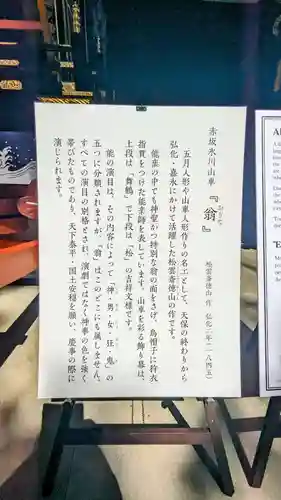 赤坂氷川山車
『翁』
おきな
松雲斎徳山 作 弘化二年(一八四五)
五月人形や山車人形作りの名工として、天保の終わりから
弘化・嘉永にかけて活躍した松雲斎徳山の作です。
能楽の中でも神聖かつ特別な翁の面をさげ、烏帽子に狩衣
指貫をつけた能楽師を表しています。山車を彩る飾り幕は、
上段は「舞鶴」で下段は「松」の吉祥文様です。
能の演目は、その内容によって「神・男・女・狂・鬼」の
五つに分類されますが、「翁」はそのどれにも属しません。
すべての演目の別格とされ、演劇ではなく神事の色を強く
帯びたものであり、天下泰平・国土安穏を願い、慶事の際に
演じられます。